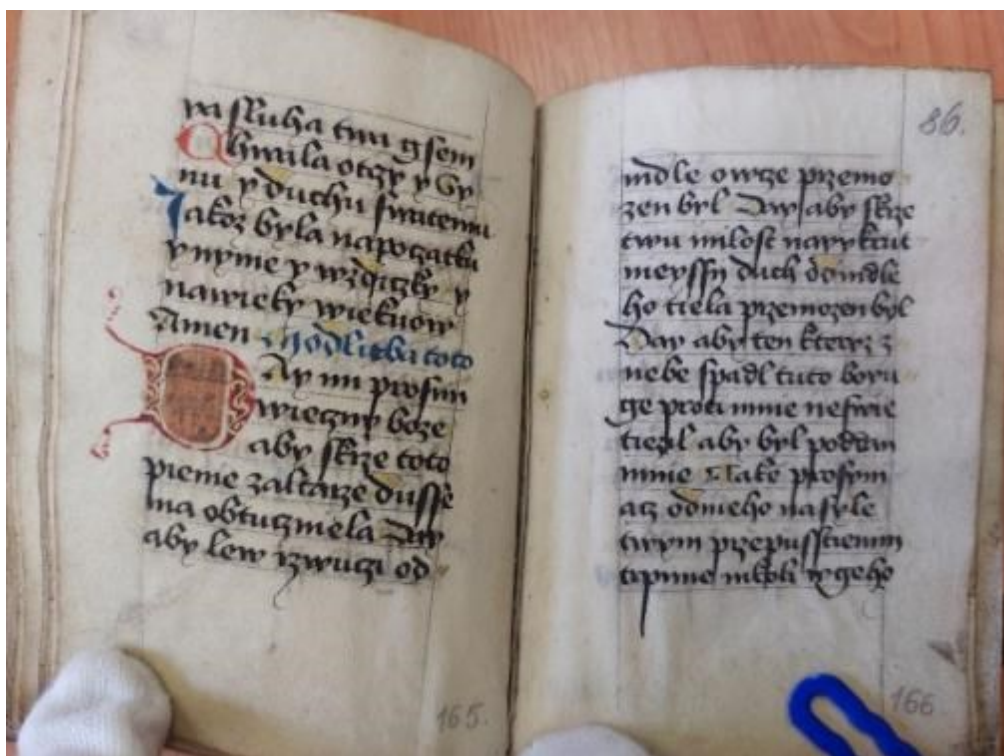 wa sluha twu gsem
Chwala otczy y Sy
nu y duchu swatemu
Jakoz byla napoczatku
y nynie y wzdiczky y
nawieky wiekuow
Amen Modlitba toto
Day mi prosym
wieczny boze
aby skrze toto
pienie zaltarze dusse
ma obtuczniela Day
aby lew rzwuczi od
86.
mdle owcze przemo
zen byl Day aby skrze
twu milost naykrut
neyssy duch od mdle
ho tiela przemozen byl
Day aby ten kterz z
nebe spadl tuto boru
ge proti mnie nefwie
tiezil aby byl poddan
mnie Take prosym
acz odnieho nasyle
twym przepusstienim
trpime nikoli w geho
165.
166